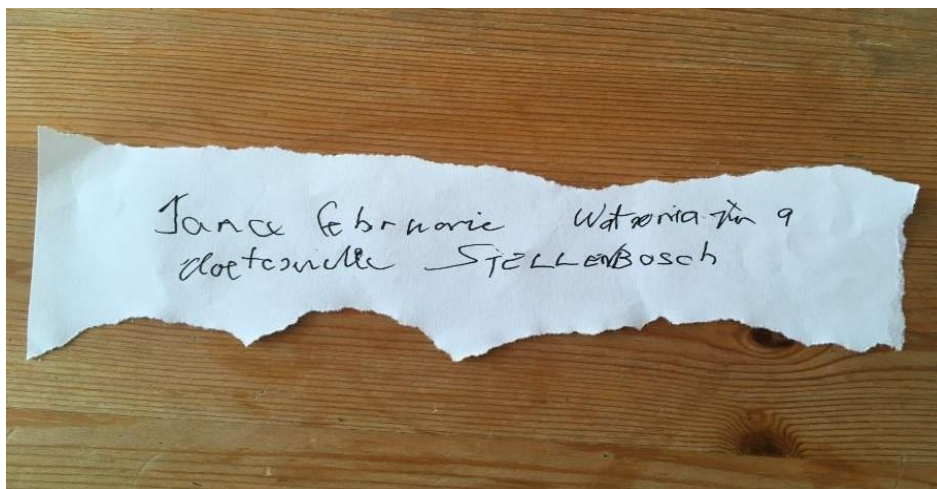 Jance Februarie Watsonia-yln 9
cloetesville STELLENBOSCH